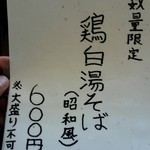 数量限定
鶏白湯そば
(昭和風)
600円
※大盛り不可